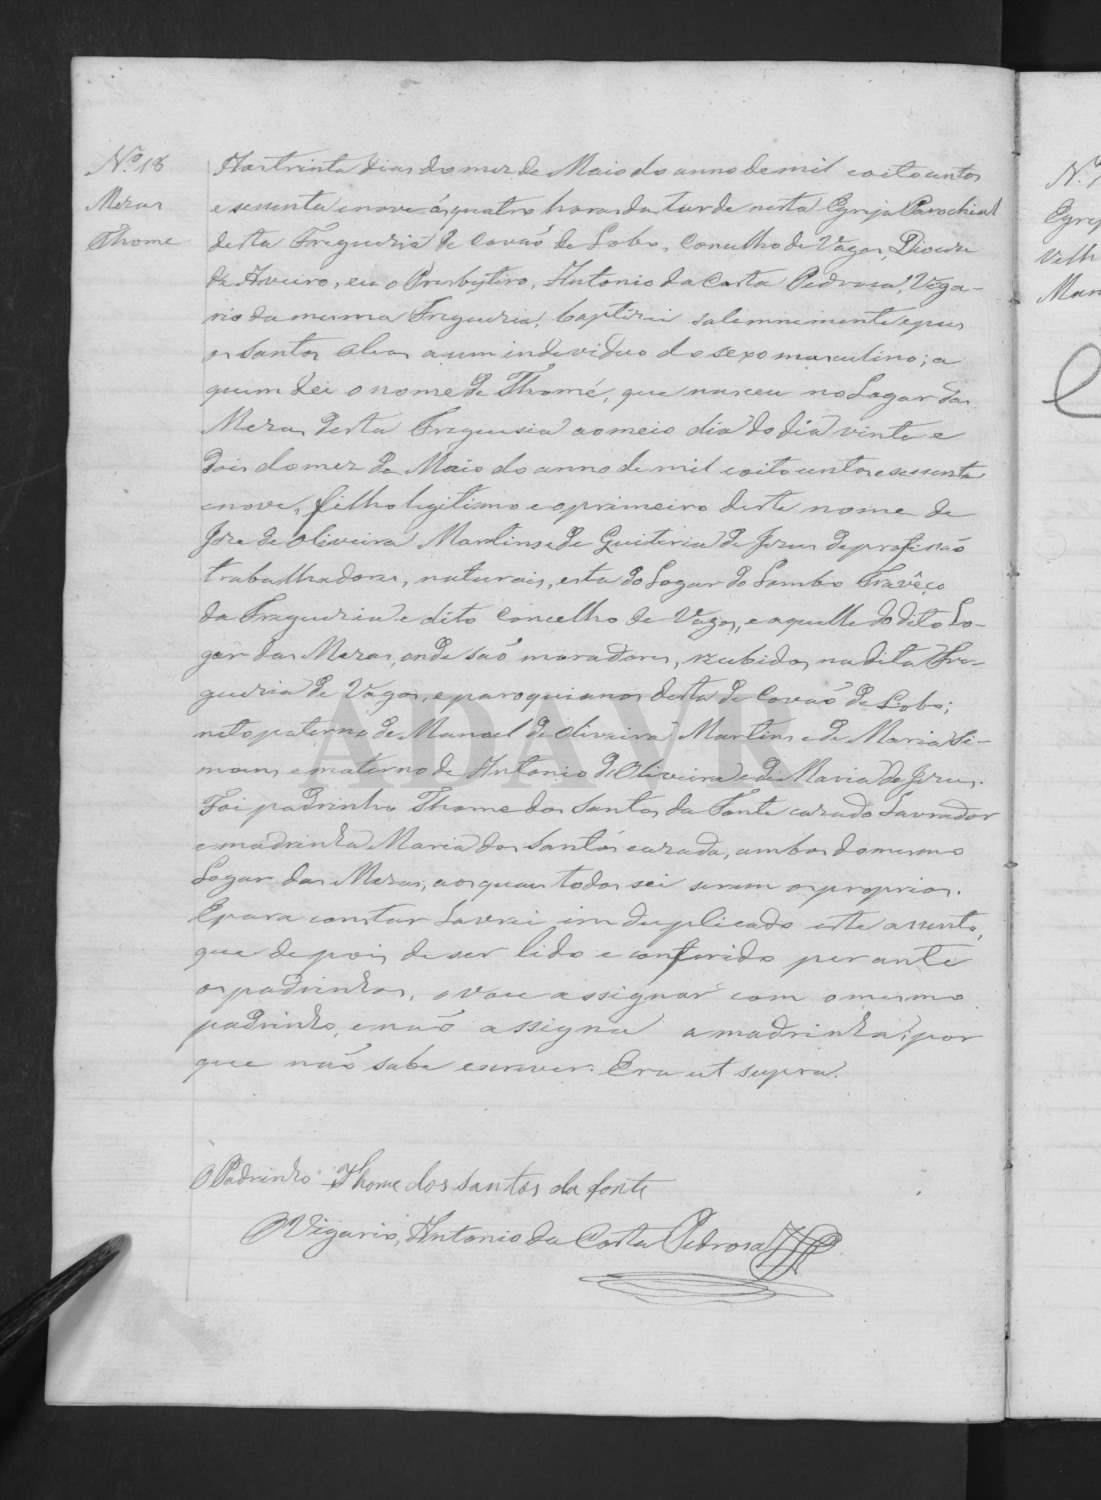 Nº 18
Mezas
Thomé
Aos trinta dias do mez de Maio do anno de mil oito centos
e sessenta e nove ás quatro horas da tarde nesta Egreja Parochial
desta Freguezia de Covaõ de Lobo, Concelho de Vagos, Diocese
de Aveiro, eu o Presbytero, Antonio da Costa Pedrosa, Viga-
rio da mesma Freguezia, baptizei solemnemente e puz
os santos oleos a um individuo do sexo masculino; a
quem dei o nome de Thomé, que nasceu no Logar das
Mezas desta Freguesia ao meio dia do dia vinte e
dois do mez de Maio do anno de mil oito centos e sessenta
e nove, filho legitimo e o primeiro deste nome de
José de Oliveira Martins e de Quiteria de Jesus de profissão
trabalhadores, naturais, esta do Logar do Lombo
da Freguezia e dito Concelho de Vagos, e aquelle do dito Lo-
gar das Mezas, onde saõ moradores, recebidos na dita Fre-
guezia de Vagos, e paroquianos desta de Covaõ de Lobo;
neto paterno de Manoel de Oliveira Martins e de Maria Si-
moens e materno de Antonio d'Oliveira e de Maria de Jesus.
Foi padrinho Thome dos Santos da Fonte cazado Lavrador
e madrinha Maria dos Santos cazada, ambos do mesmo
Logar das Mezas, aos quaes todos sei serem os proprios.
E para constar Lavrei im duplicado este assento,
que depois de ser lido e conferido perante
os padrinhos, o vou assignar com o mesmo
padrinho, e naõ assigna a madrinha, por
que naõ sabe escrever. Era ut supra.
O Padrinho Thome dos santos da fonte
O Vigario, Antonio da Costa Pedrosa
ADAVR
Nº
Egrej
Velh
Man